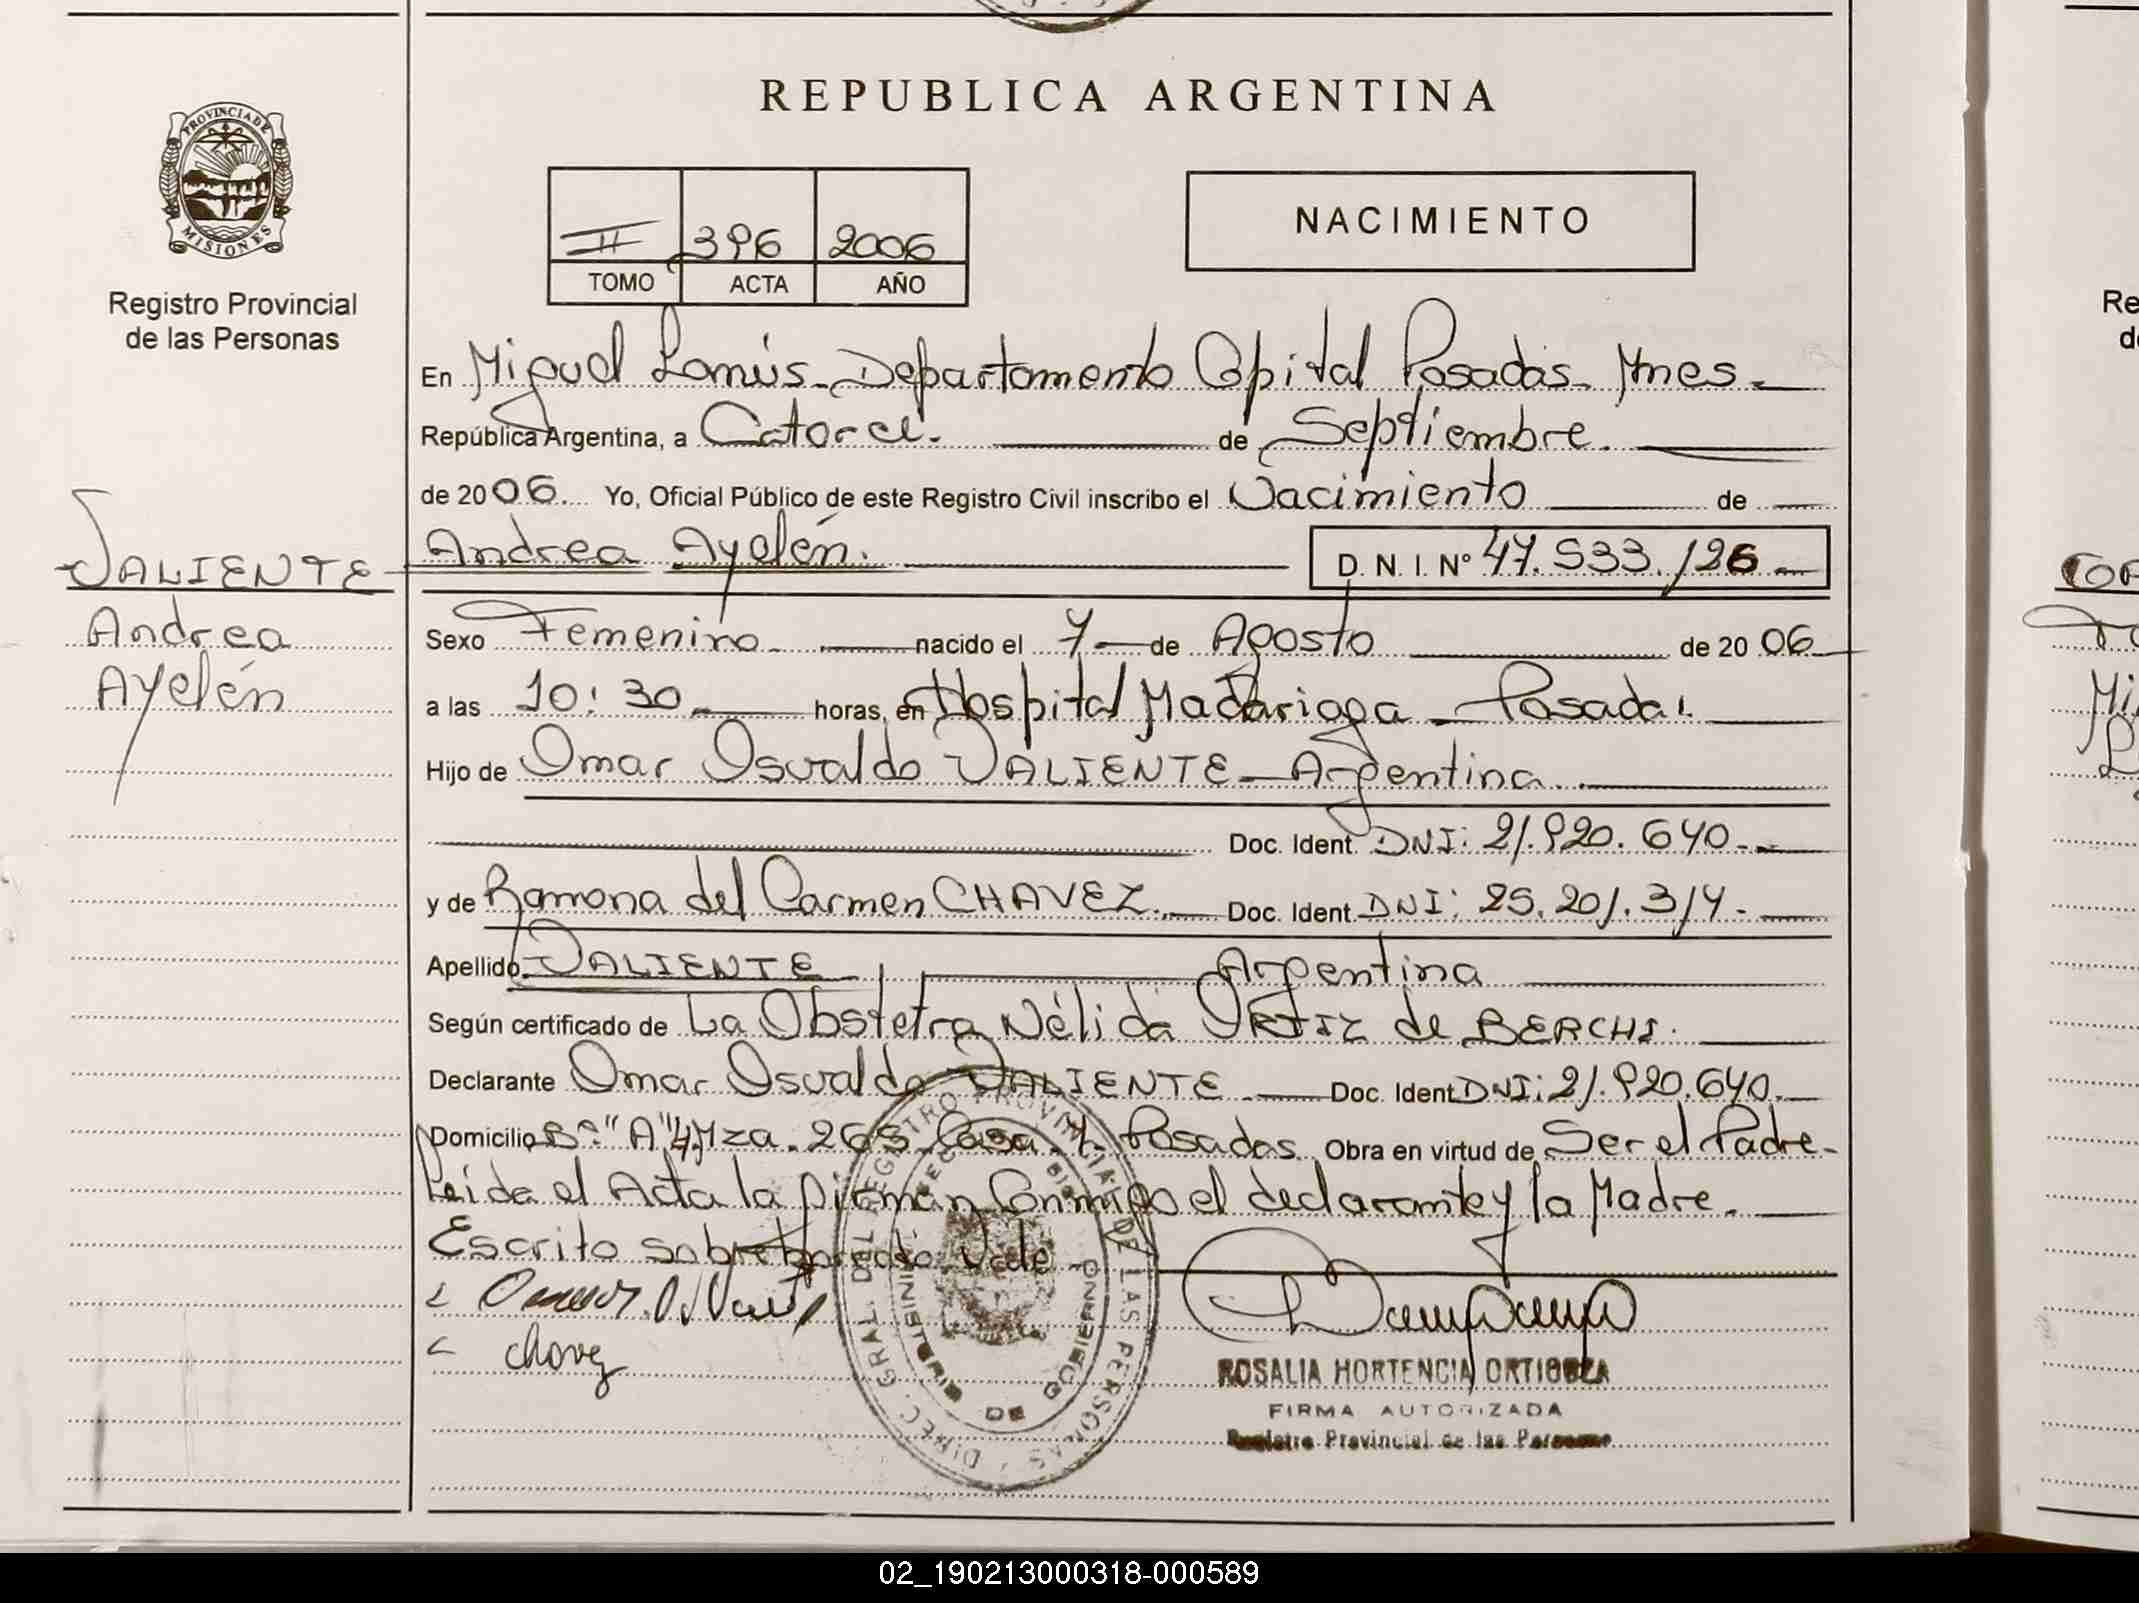 REPUBLICA ARGENTINA
PROVINCIA DE
MISIONES
Registro Provincial
de las Personas
II 396 2006
TOMO ACTA AÑO
NACIMIENTO
En Miguel Lanús - Departamento Capital Posadas - Mnes -
República Argentina, a Catorce. de Septiembre.
de 2006. Yo, Oficial Público de este Registro Civil inscribo el Nacimiento de
Andrea Ayelén. D. N. I. Nº 47.533.126
VALIENTE
Andrea
Ayelén
Sexo Femenino nacido el 7 de Agosto de 2006
a las 10:30 horas, en Hospital Madariaga - Posadas.
Hijo de Omar Osvaldo VALIENTE - Argentina.
Doc. Ident. DNI: 21.920.640.-
y de Ramona del Carmen CHAVEZ. Doc. Ident. DNI: 25.201.314.-
Apellido VALIENTE Argentina
Según certificado de La Obstetra Nélida ORTIZ de BERCHI.
Declarante Omar Osvaldo VALIENTE Doc. Ident. DNI: 21.920.640.
Domicilio Bº "A"4 Mza. 265 Casa 7. Posadas Obra en virtud de Ser el Padre-
Leida el Acta la firman Conmigo el declarante y la Madre.
Escrito sobre borrado Vale
Chavez
DIREC. GRAL. DEL REGISTRO PROVINCIAL DE LAS PERSONAS
DE GOBIERNO
ROSALIA HORTENCIA ORTIGOZA
FIRMA AUTORIZADA
Registro Provincial de las Personas
Re
Mi
02_190213000318-000589